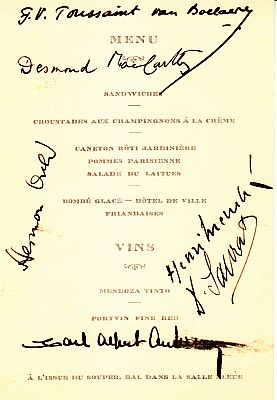 F. V. Toussaint van Boelaere
MENU
Desmond MacCarthy
SANDWICHES
CROUSTADES AUX CHAMPINGNONS À LA CRÈME
CANETON RÔTI JARDINIÈRE
POMMES PARISIENNE
SALADE DU LAITUES
BOMBE GLACÉ — HÔTEL DE VILLE
FRIANDAISES
Herman Ould
VINS
Henri Membré
D. Sarrat
MENDOZA TINTO
PORTVIN FINE RED
Carl Albert
À L'ISSUE DU SOUPER, BAL DANS LA SALLE BLEUE